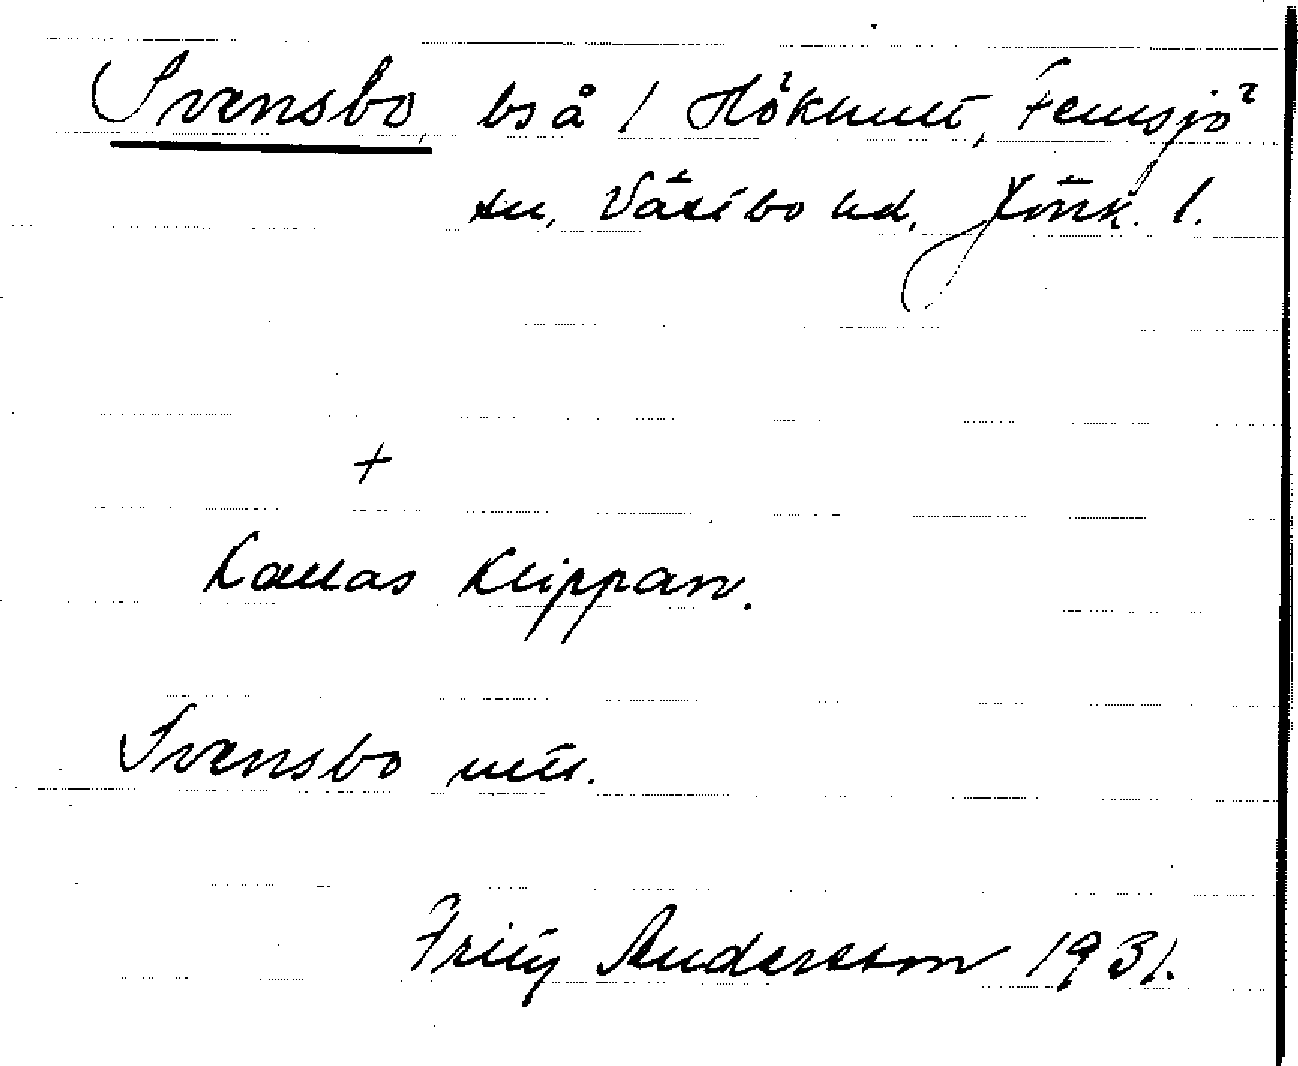 Svensbo, bså / Hökhult, Femsjö
sn, Västbo hd, Jönk. l.
+
Kallas Klippan.
Svensbo utt.
Fritz Andersson 1931.